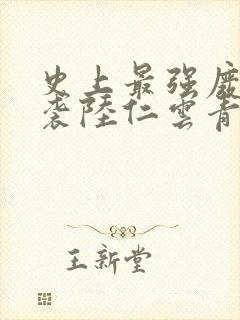 史上最强废
袭陆仁云青
王新堂